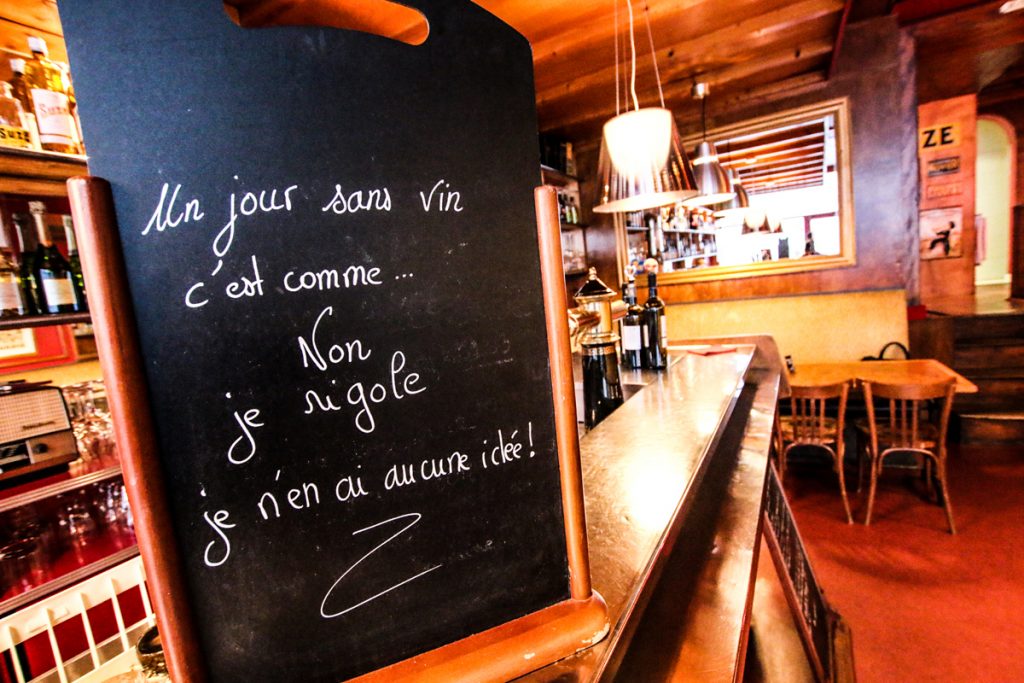 Suze
Suze
Un jour sans vin
c'est comme...
Non
je rigole
je n'en ai aucune idée!
ZE